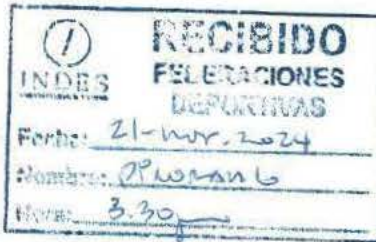 RECIBIDO
INDES
FEDERACIONES
DEPORTIVAS
Fecha: 21-nov.2024
Nombre:
Hora: 3.30pm